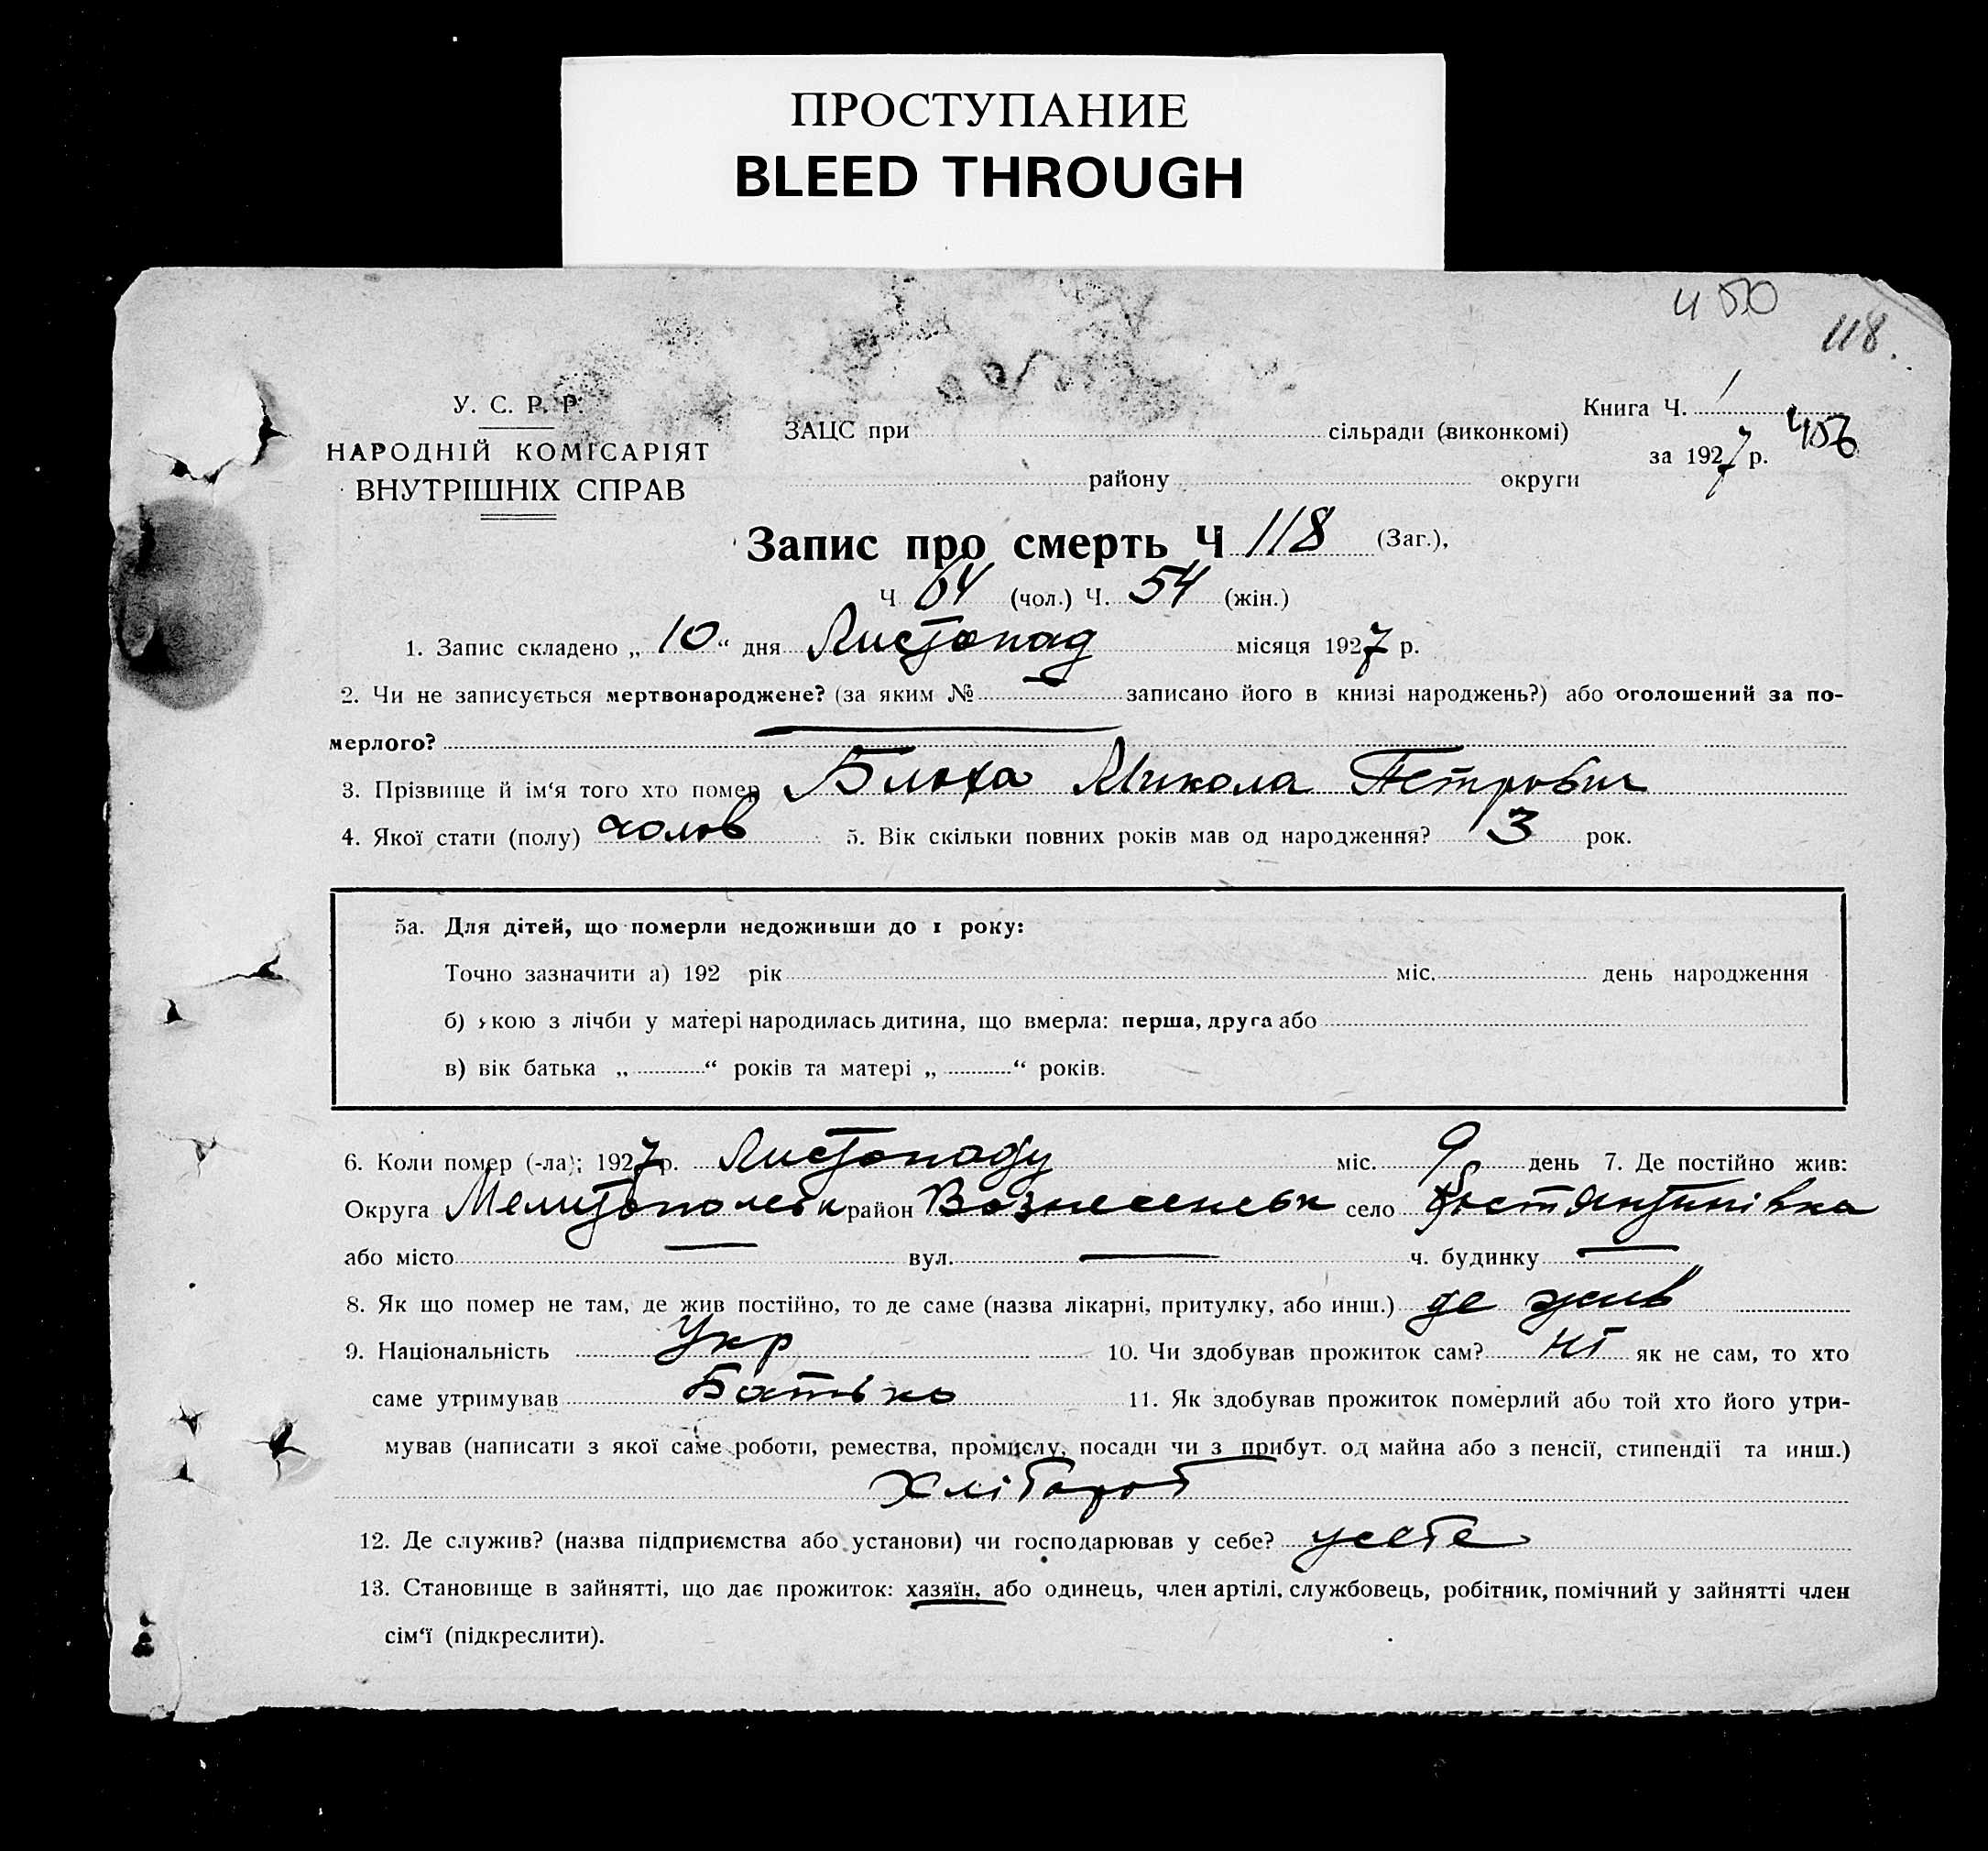 ПРОСТУПАНИЕ
BLEED THROUGH
450
118.
У. С. Р. Р.
НАРОДНІЙ КОМІСАРІЯТ
ВНУТРІШНІХ СПРАВ
ЗАЦС при сільради (виконкомі)
району округи
Книга Ч. 1
за 1927 р. 456
Запис про смерть Ч 118 (Заг.),
Ч 64 (чол.) Ч. 54 (жін.)
1. Запис складено „ 10 “ дня Листопад місяця 1927 р.
2. Чи не записується мертвонароджене? (за яким № — записано його в книзі народжень?) або оголошений за по-
мерлого? —
3. Прізвище й ім‘я того хто помер Блоха Микола Петрович
4. Якої стати (полу) чолов 5. Вік скільки повних років мав од народження? 3 рок.
5а. Для дітей, що померли недоживши до 1 року:
Точно зазначити а) 192 рік міс. день народження
б) якою з лічби у матері народилась дитина, що вмерла: перша, друга або
в) вік батька „ “ років та матері „ “ років.
6. Коли помер (-ла); 1927 р. Листопаду міс. 9 день 7. Де постійно жив:
Округа Мелитопольськ район Вознесенськ село Костянтинівка
або місто — вул. — ч. будинку —
8. Як що помер не там, де жив постійно, то де саме (назва лікарні, притулку, або инш.) де жив
9. Національність Укр 10. Чи здобував прожиток сам? ні як не сам, то хто
саме утримував Батько 11. Як здобував прожиток померлий або той хто його утри-
мував (написати з якої саме роботи, ремества, промислу, посади чи з прибут. од майна або з пенсії, стипендії та инш.)
Хлібороб
12. Де служив? (назва підприємства або установи) чи господарював у себе? у себе
13. Становище в зайнятті, що дає прожиток: хазяїн, або одинець, член артілі, службовець, робітник, помічний у зайнятті член
сім‘ї (підкреслити).